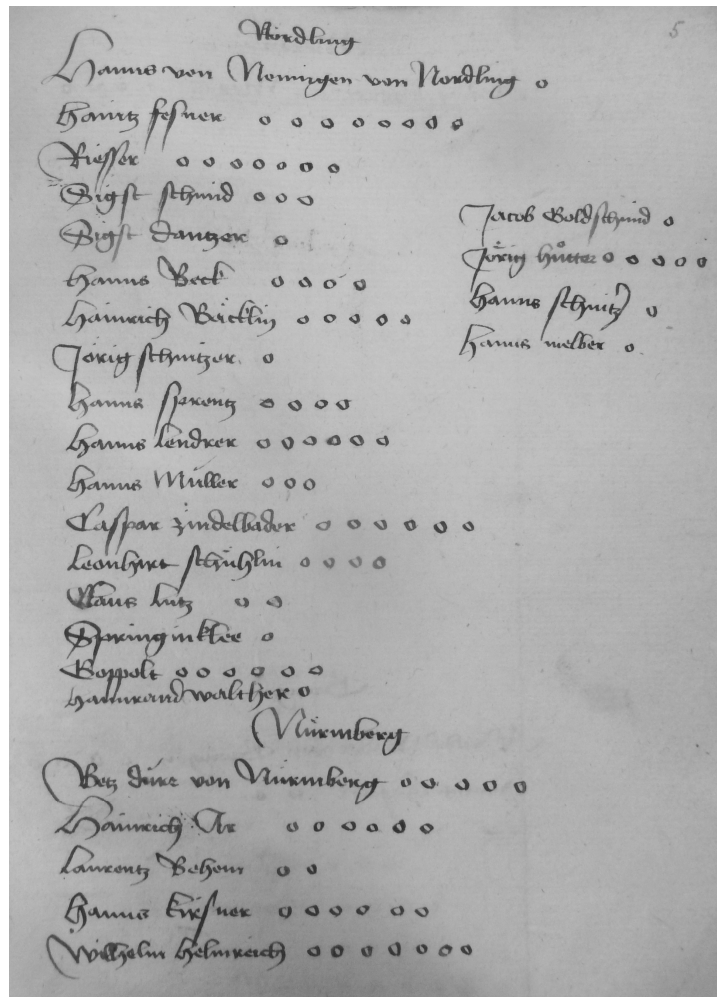 5
Nördling
Hanns von Nenningen von Nordling o
Haintz fesner o o o o o o o o
Riesser o o o o o o o
Sigst schmid o o o
Sigst dantzer o
Hanns Beck o o o o
Hainrich Bäcklin o o o o o
Jörig schnitzer o
Hanns sprentz o o o o
Hanns lendrer o o o o o o
Hanns Müller o o o
Caspar zindelbader o o o o o o
Leonhart schühlin o o o o
Claus lutz o o
Springinklee o
Goppolt o o o o o o
walther o
Jacob Goldschmid o
Jörig hütter o o o o o
Hanns schmitz o
Hanns melber o
Nürmberg
Betz dürr von Nürmberg o o o o o
Hainrich Ar o o o o o o
Laurentz Behem o o
Hanns kirsner o o o o o o
Wilhelm helmreich o o o o o o o